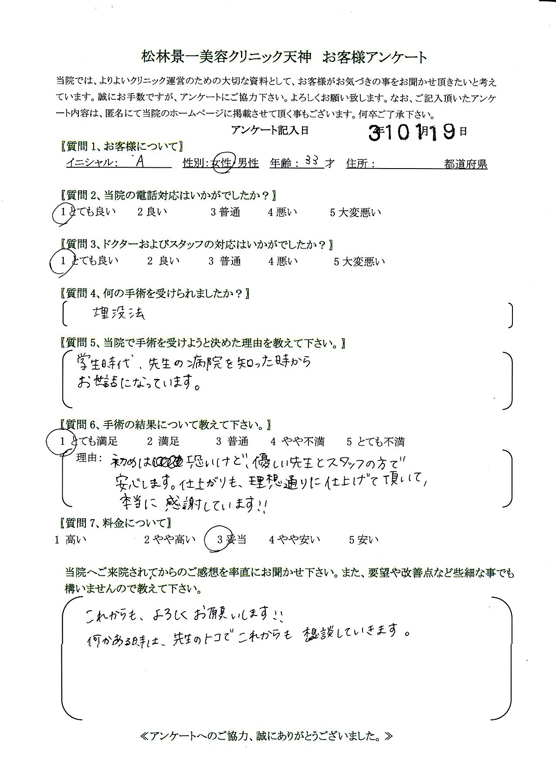 松林景一美容クリニック天神　お客様アンケート
当院では、よりよいクリニック運営のための大切な資料として、お客様がお気づきの事をお聞かせ頂きたいと考え
ています。誠にお手数ですが、アンケートにご協力下さい。よろしくお願い致します。なお、ご記入頂いたアンケ
ート内容は、匿名にて当院のホームページに掲載させて頂く事もございます。何卒ご了承下さい。
アンケート記入日　31年01月19日
〖質問 1、お客様について〗
イニシャル：　A　性別：女性/男性　年齢：33才　住所：　都道府県
〖質問 2、当院の電話対応はいかがでしたか？〗
1 とても良い　2 良い　3 普通　4 悪い　5 大変悪い
〖質問 3、ドクターおよびスタッフの対応はいかがでしたか？〗
1 とても良い　2 良い　3 普通　4 悪い　5 大変悪い
〖質問 4、何の手術を受けられましたか？〗
埋没法
〖質問 5、当院で手術を受けようと決めた理由を教えて下さい。〗
学生時代、先生の病院を知った時から
お世話になっています。
〖質問 6、手術の結果について教えて下さい。〗
1 とても満足　2 満足　3 普通　4 やや不満　5 とても不満
理由：初めは恐いけど、優しい先生とスタッフの方で
安心します。仕上がりも、理想通りに仕上げて頂いて、
本当に感謝しています!!
〖質問 7、料金について〗
1 高い　2 やや高い　3 妥当　4 やや安い　5 安い
当院へご来院されてからのご感想を率直にお聞かせ下さい。また、要望や改善点など些細な事でも
構いませんので教えて下さい。
これからも、よろしくお願いします!!
何かある時は、先生のトコでこれからも相談していきます。
≪アンケートへのご協力、誠にありがとうございました。≫